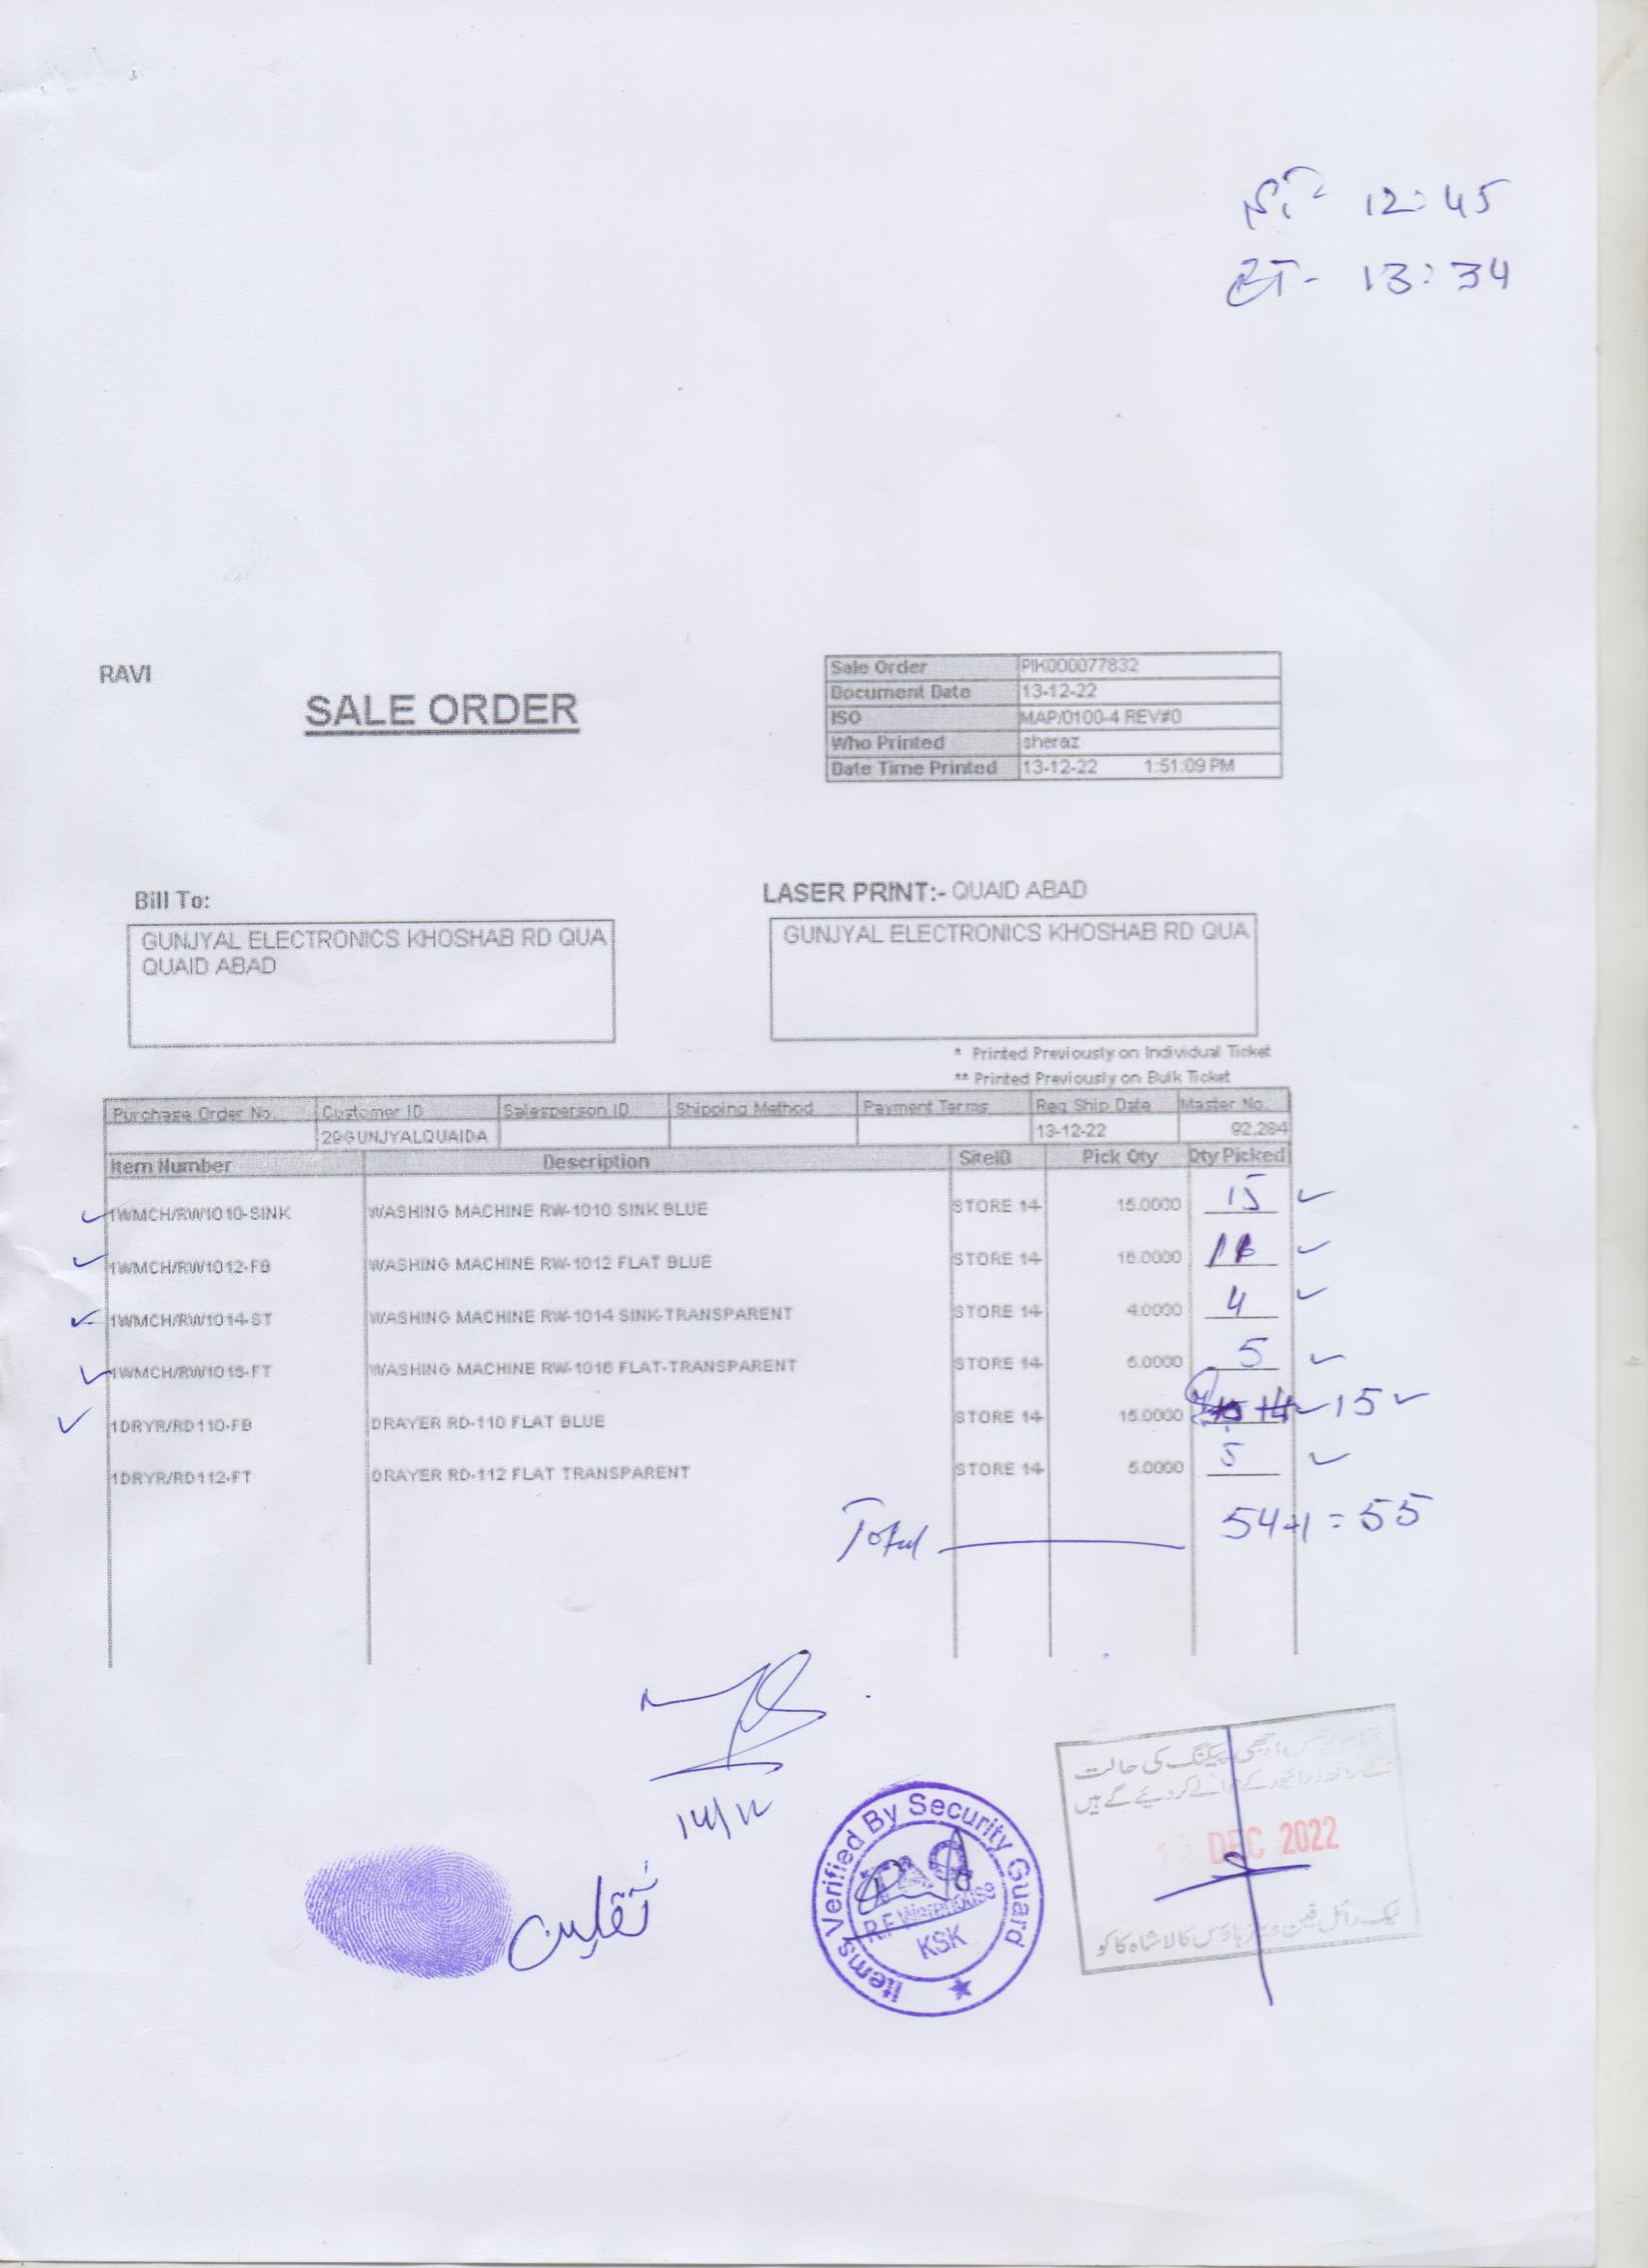 12:45
ET- 13:34
RAVI
SALE ORDER
Sale Order PIK000077832
Document Date 13-12-22
ISO MAP/0100-4 REV#0
Who Printed sheraz
Date Time Printed 13-12-22 1:51:09 PM
Bill To:
GUNJYAL ELECTRONICS KHOSHAB RD QUA
QUAID ABAD
LASER PRINT:- QUAID ABAD
GUNJYAL ELECTRONICS KHOSHAB RD QUA
* Printed Previously on Individual Ticket
** Printed Previously on Bulk Ticket
Purchase Order No. Customer ID Salesperson ID Shipping Method Payment Terms Req Ship Date Master No.
29GUNJYALQUAIDA 13-12-22 92,284
Item Number Description SiteID Pick Qty Qty Picked
1WMCH/RW1010-SINK WASHING MACHINE RW-1010 SINK BLUE STORE 14 15.0000 15
1WMCH/RW1012-FB WASHING MACHINE RW-1012 FLAT BLUE STORE 14
1WMCH/RW1014-ST WASHING MACHINE RW-1014 SINK-TRANSPARENT STORE 14 4.0000 4
WASHING MACHINE STORE 14 5
1DRYR/RD110-FB DRAYER RD-110 FLAT BLUE STORE 14 15.0000 14 15
1DRYR/RD112-FT DRAYER RD-112 FLAT TRANSPARENT STORE 14 5.0000 5
Total 54+1=55
14/12
ثقلین
Items Verified By Security Guard
R.F Warehouse
KSK
اچھی پیکنگ کی حالت
کردیئے گے ہیں
DEC 2022
کالا شاہ کاکو